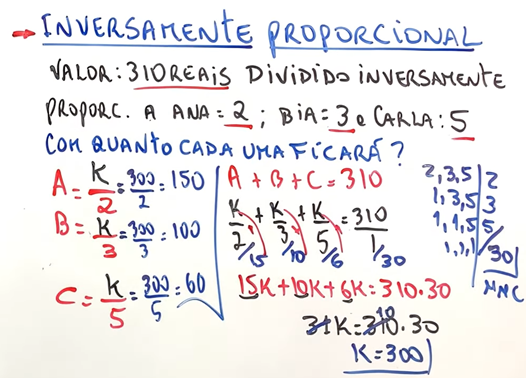 → INVERSAMENTE PROPORCIONAL
VALOR: 310 REAIS DIVIDIDO INVERSAMENTE
PROPORC. A ANA = 2 ; BIA = 3 e CARLA: 5
COM QUANTO CADA UMA FICARÁ ?
A = K/2 = 300/2 = 150
B = K/3 = 300/3 = 100
C = K/5 = 300/5 = 60
A + B + C = 310
K/2 + K/3 + K/5 = 310/1
/15 /10 /6 /30
15K + 10K + 6K = 310.30
31K = 310.30
10
K = 300
2,3,5 | 2
1,3,5 | 3
1,1,5 | 5
1,1,1 / 30
MMC